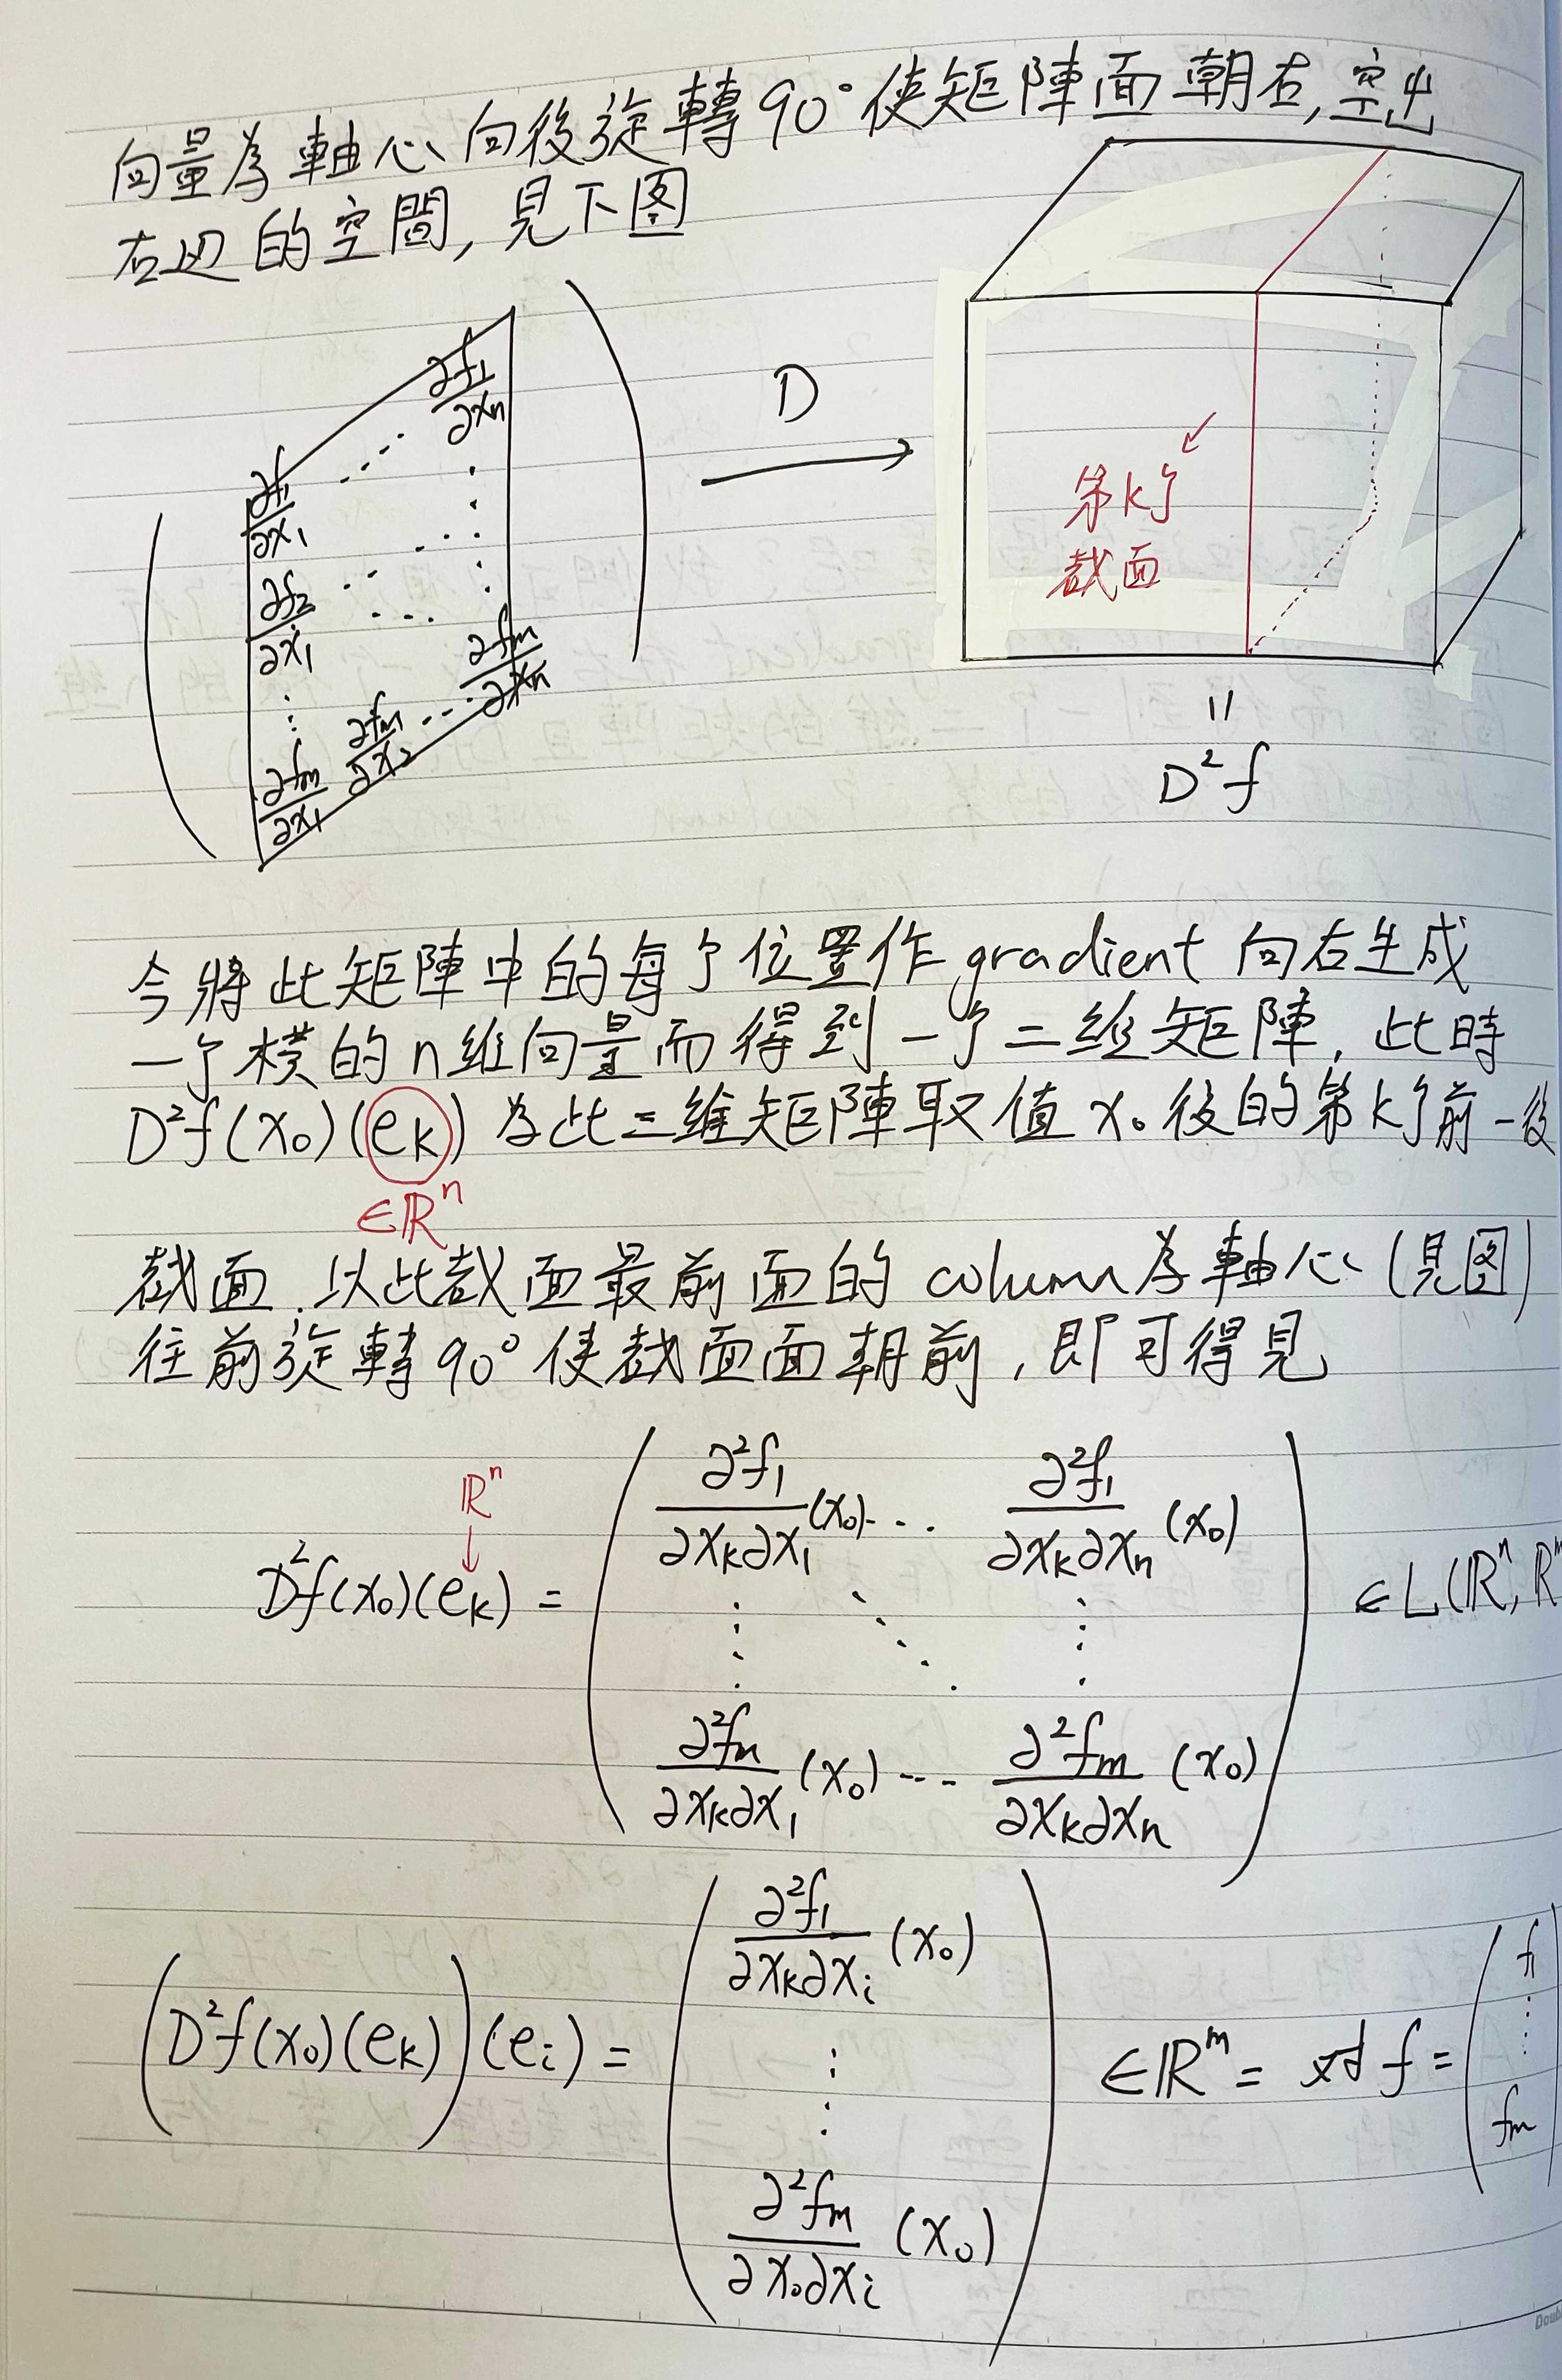 向量為軸心向後旋轉90°使矩陣面朝右,空出
右边的空間,見下图
∂f₁/∂x₁ ⋯ ∂f₁/∂xₙ
∂f₂/∂x₁ ⋯
⋮
∂fₘ/∂x₁ ∂fₘ/∂x₂ ⋯ ∂fₘ/∂xₙ
D
第k个
截面
=
D²f
今將此矩陣中的每个位置作gradient向右生成
一个横的n維向量而得到一个三維矩陣,此時
D²f(x₀)(eₖ)為此三維矩陣取值x₀後的第k个前-後
∈ℝⁿ
截面.以此截面最前面的column為軸心(見图)
往前旋轉90°使截面面朝前,即可得見
ℝⁿ
↓
D²f(x₀)(eₖ) = ( ∂²f₁/∂xₖ∂x₁(x₀) ⋯ ∂²f₁/∂xₖ∂xₙ(x₀)
⋮ ⋱ ⋮
∂²fₙ/∂xₖ∂x₁(x₀) ⋯ ∂²fₘ/∂xₖ∂xₙ(x₀) ) ∈L(ℝⁿ,ℝᵐ
(D²f(x₀)(eₖ))(eᵢ) = ( ∂²f₁/∂xₖ∂xᵢ(x₀)
⋮
∂²fₘ/∂x₀∂xᵢ(x₀) ) ∈ℝᵐ = 对f = ( f₁
⋮
fₘ